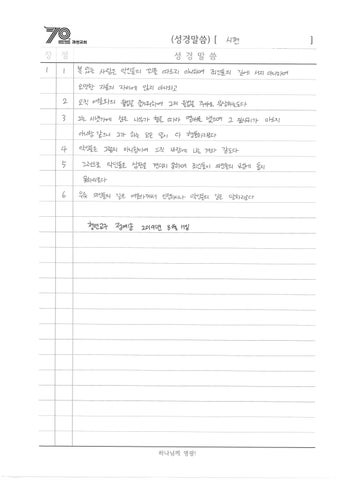 70
(성경말씀) [ 시편 ]
장 절 성 경 말 씀
1 1 복 있는 사람은 악인들의 꾀를 따르지 아니하며 죄인들의 길에 서지 아니하며
오만한 자들의 자리에 앉지 아니하고
2 오직 여호와의 율법을 즐거워하여 그의 율법을 주야로 묵상하는도다
3 그는 시냇가에 심은 나무가 철을 따라 열매를 맺으며 그 잎사귀가 마르지
아니함 같으니 그가 하는 모든 일이 다 형통하리로다
4 악인들은 그렇지 아니함이여 오직 바람에 나는 겨와 같도다
5 그러므로 악인들은 심판을 견디지 못하며 죄인들이 의인들의 모임에 들지
못하리로다
6 무릇 의인들의 길은 여호와께서 인정하시나 악인들의 길은 망하리로다
2019년 8월 11일
하나님께 영광!